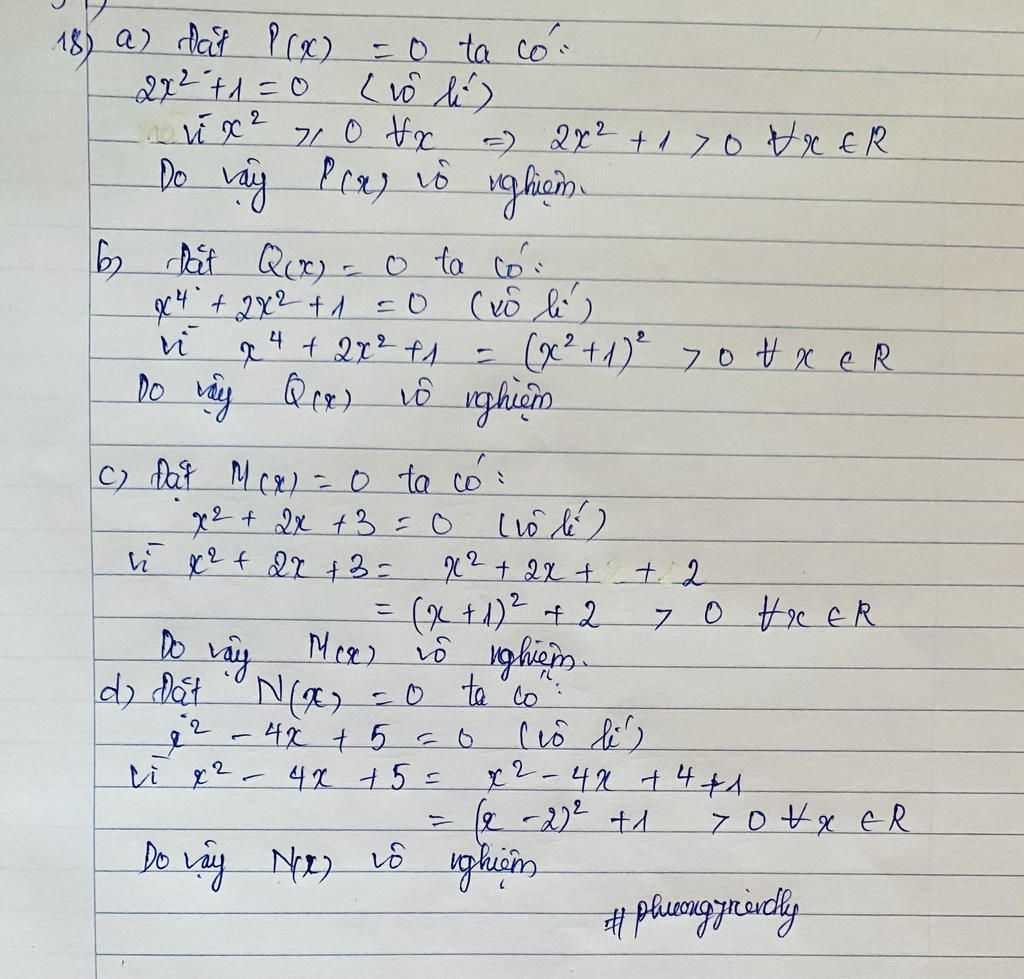 18) a) Đặt P(x) = 0 ta có:
2x² + 1 = 0 (vô lí)
vì x² ≥ 0 ∀x => 2x² + 1 > 0 ∀x ∈ R
Do vậy P(x) vô nghiệm.
b) Đặt Q(x) = 0 ta có:
x⁴ + 2x² + 1 = 0 (vô lí)
vì x⁴ + 2x² + 1 = (x² + 1)² > 0 ∀x ∈ R
Do vậy Q(x) vô nghiệm
c) Đặt M(x) = 0 ta có:
x² + 2x + 3 = 0 (vô lí)
vì x² + 2x + 3 = x² + 2x + + 2
= (x + 1)² + 2 > 0 ∀x ∈ R
Do vậy M(x) vô nghiệm.
d) Đặt N(x) = 0 ta có:
x² - 4x + 5 = 0 (vô lí)
vì x² - 4x + 5 = x² - 4x + 4 + 1
= (x - 2)² + 1 > 0 ∀x ∈ R
Do vậy N(x) vô nghiệm
#phuongfriendly